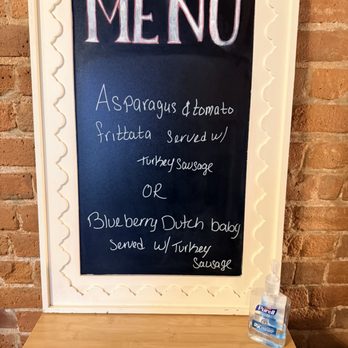 MENU
Asparagus & tomato
frittata served w/
Turkey Sausage
OR
Blueberry Dutch baby
Served w/ Turkey
Sausage
Purell